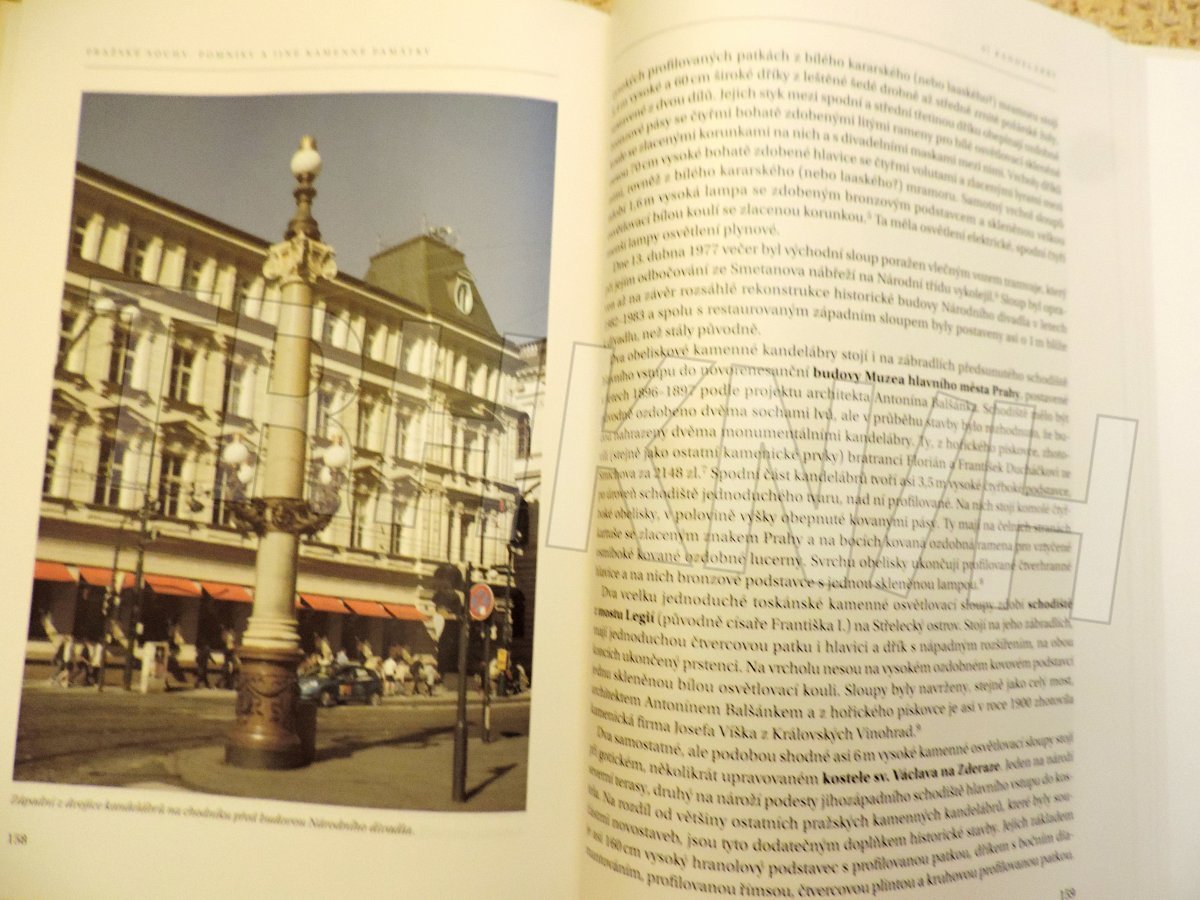 PRAŽSKÉ SOCHY, POMNÍKY A JINÉ KAMENNÉ PAMÁTKY
Západní z dvojice kandelábrů na chodníku před budovou Národního divadla.
158
profilovaných patkách z bílého kararského (nebo laaského?) mramoru stojí
m vysoké a 60 cm široké dříky z leštěné šedé drobně až středně zrnité požárské žuly,
z dvou dílů. Jejich styk mezi spodní a střední třetinou dříku obepínají ozdobné
pásy se čtyřmi bohatě zdobenými litými rameny pro bílé osvětlovací skleněné
se zlacenými korunkami na nich a s divadelními maskami mezi nimi. Vrcholy dříků
70 cm vysoké bohatě zdobené hlavice se čtyřmi volutami a zlacenými lyrami mezi
rovněž z bílého kararského (nebo laaského?) mramoru. Samotný vrchol sloupů
1,6 m vysoká lampa se zdobeným bronzovým podstavcem a skleněnou velkou
osvětlovací bílou koulí se zlacenou korunkou.⁵ Ta měla osvětlení elektrické, spodní čtyři
menší lampy osvětlení plynové.
Dne 13. dubna 1977 večer byl východní sloup poražen vlečným vozem tramvaje, který
při jejím odbočování ze Smetanova nábřeží na Národní třídu vykolejil.⁶ Sloup byl opra-
ven až na závěr rozsáhlé rekonstrukce historické budovy Národního divadla v letech
1982–1983 a spolu s restaurovaným západním sloupem byly postaveny asi o 1 m blíže
divadlu, než stály původně.
Dva obeliskové kamenné kandelábry stojí i na zábradlích předsunutého schodiště
hlavního vstupu do novorenesanční budovy Muzea hlavního města Prahy, postavené
v letech 1896–1897 podle projektu architekta Antonína Balšánka. Schodiště mělo být
původně ozdobeno dvěma sochami lvů, ale v průběhu stavby bylo rozhodnuto, že bu-
dou nahrazeny dvěma monumentálními kandelábry. Ty, z hořického pískovce, zhoto-
vili (stejně jako ostatní kamenické prvky) bratranci Florián a František Ducháčkovi ze
Smíchova za 2148 zl.⁷ Spodní část kandelábrů tvoří asi 3,5 m vysoké čtyřboké podstavce,
po úroveň schodiště jednoduchého tvaru, nad ní profilované. Na nich stojí komolé čtyř-
boké obelisky, v polovině výšky obepnuté kovanými pásy. Ty mají na čelních stranách
kartuše se zlaceným znakem Prahy a na bocích kovaná ozdobná ramena pro vztyčené
osmiboké kované ozdobné lucerny. Svrchu obelisky ukončují profilované čtverhranné
hlavice a na nich bronzové podstavce s jednou skleněnou lampou.⁸
Dva vcelku jednoduché toskánské kamenné osvětlovací sloupy zdobí schodiště
z mostu Legií (původně císaře Františka I.) na Střelecký ostrov. Stojí na jeho zábradlích,
mají jednoduchou čtvercovou patku i hlavici a dřík s nápadným rozšířením, na obou
koncích ukončený prstenci. Na vrcholu nesou na vysokém ozdobném kovovém podstavci
jednu skleněnou bílou osvětlovací kouli. Sloupy byly navrženy, stejně jako celý most,
architektem Antonínem Balšánkem a z hořického pískovce je asi v roce 1900 zhotovila
kamenická firma Josefa Víška z Královských Vinohrad.⁹
Dva samostatné, ale podobou shodné asi 6 m vysoké kamenné osvětlovací sloupy stojí
při gotickém, několikrát upravovaném kostele sv. Václava na Zderaze. Jeden na nároží
severní terasy, druhý na nároží podesty jihozápadního schodiště hlavního vstupu do kos-
tela. Na rozdíl od většiny ostatních pražských kamenných kandelábrů, které byly sou-
částmi novostaveb, jsou tyto dodatečným doplňkem historické stavby. Jejich základem
je asi 160 cm vysoký hranolový podstavec s profilovanou patkou, dříkem s bočním dia-
mantováním, profilovanou římsou, čtvercovou plintou a kruhovou profilovanou patkou,
159
TRH KNIH